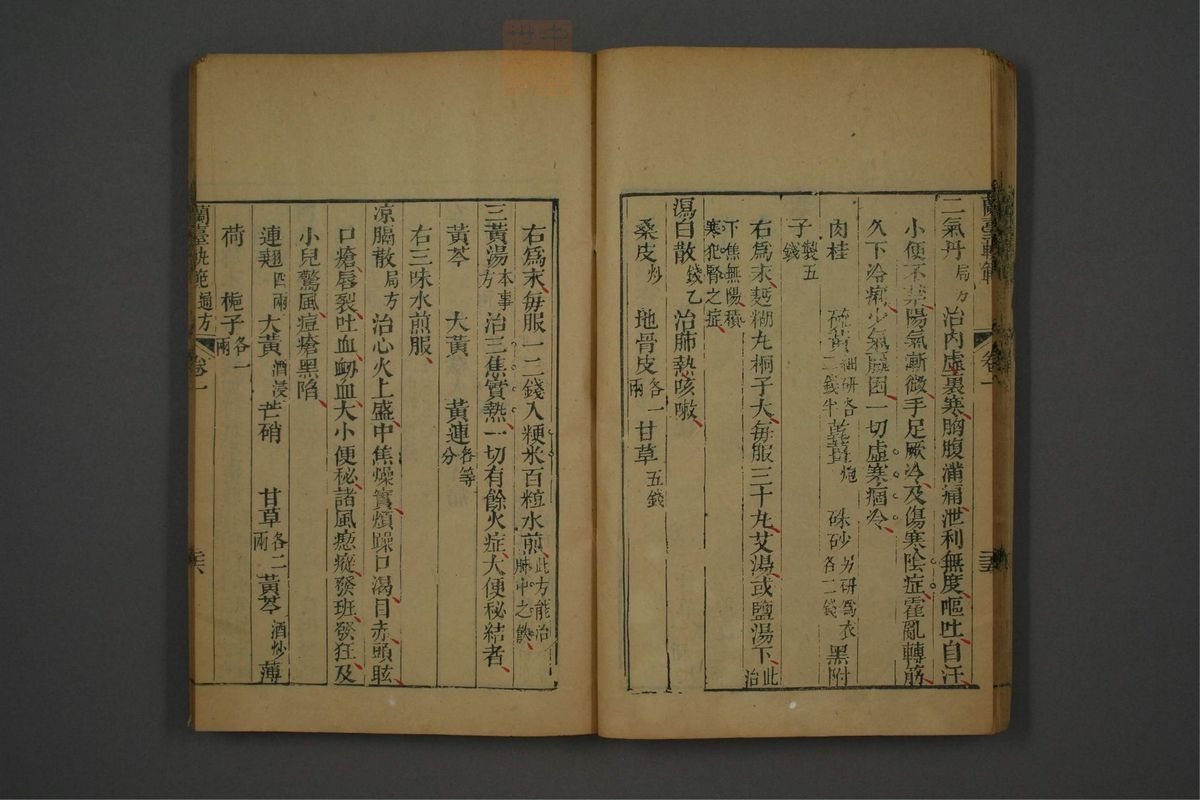 蘭臺軌範 卷一 二十五
二氣丹局方 治內虛裏寒胸腹滿痛泄利無度嘔吐自汗
小便不禁陽氣漸微手足厥冷及傷寒陰症霍亂轉筋
久下冷痢少氣羸困一切虛寒痼冷
肉桂 硫黃細研各二錢半 乾薑炮 硃砂另研為衣各二錢 黑附
子製五錢
右爲末麪糊丸桐子大每服三十丸艾湯或鹽湯下此治
下焦無陽積寒犯腎之症
瀉白散錢乙 治肺熱咳嗽
桑皮炒 地骨皮各一兩 甘草五錢
右爲末每服一二錢入粳米百粒水煎此方能治肺中之飲
三黃湯本事方 治三焦實熱一切有餘火症大便秘結者
黃芩 大黃 黃連各等分
右三味水煎服
凉膈散局方 治心火上盛中焦燥實煩躁口渴目赤頭眩
口瘡唇裂吐血衄血大小便秘諸風瘛瘲發班發狂及
小兒驚風痘瘡黑陷
連翹四兩 大黃酒浸 芒硝 甘草各二兩 黃芩酒炒 薄
荷 梔子各一兩
蘭臺軌範 通方 卷一 二十六